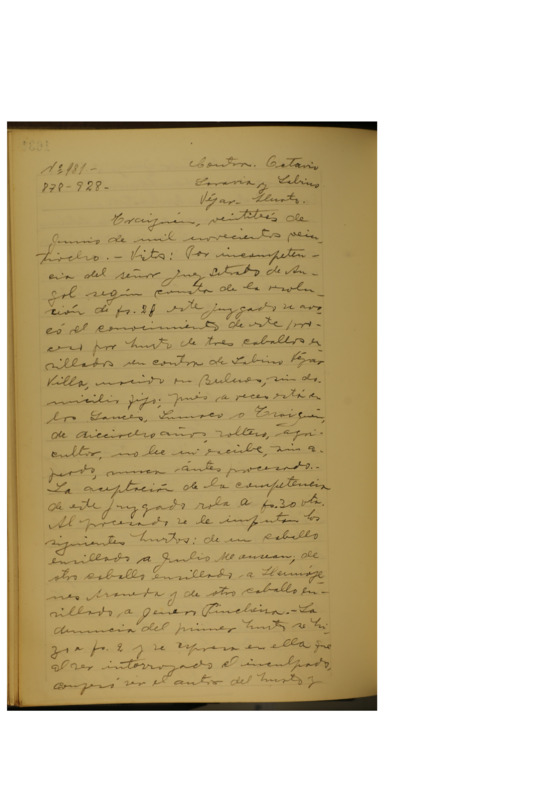 Nº 881-
878-928-
Contra. Octavio
Saravia y Sabino
Véjar. Hurto.
Traiguén, veintitrés de
Junio de mil novecientos vein-
tiocho. - Vistos: Por incompeten-
cia del señor Juez Letrado de An-
gol según consta de la resolu-
ción de fs. 28 este juzgado se avo-
có el conocimiento de este pro-
ceso por hurto de tres caballos en-
sillados en contra de Sabino Véjar
Villa, nacido en Bulnes, sin do-
micilio fijo; pués a veces está en
los Sauces, Lumaco o Traiguén,
de dieciocho años, soltero, agri-
cultor, no lee ni escribe, sin a-
podo, nunca ántes procesado. -
La aceptación de la competencia
de este juzgado rola a fs. 30 vta.
Al procesado se le imputan los
siguientes hurtos: de un caballo
ensillado a Julio, de
otro caballo ensillado a Hermóge-
nes Araneda y de otro caballo en-
sillado a Jenaro Pincheira. - La
denuncia del primer hurto se hi-
zo a fs. 2 y se espresa en ella que
al ser interrogado el inculpado,
confesó ser el autor del hurto y